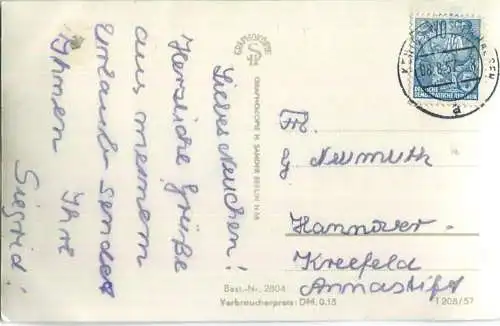 Liebes Neuchen!
Herzliche Grüße
aus meinem
Urlaub sendet
Ihnen Ihre
Sigrid!
GRAPHOKOPIE
GRAPHOKOPIE H. SANDER BERLIN N 58
10
DEUTSCHE
DEMOKRATISCHE REPUBLIK
a
Frl.
Neumuth
Hannover
Kreefeld
Annastift
Best.-Nr. 2804
Verbraucherpreis: DM. 0.15
T 208/57